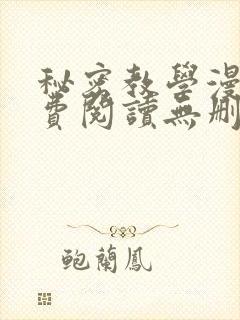 秘密教學漫
費閱讀無刪
鮑蘭鳳